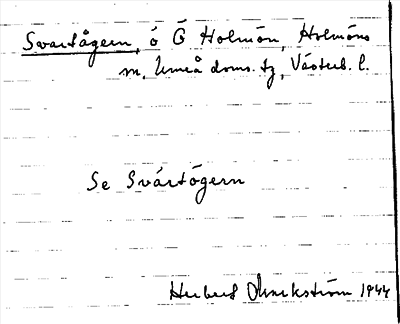 Svartågern, ö Ö Holmön, Holmöns
sn, Umeå doms. tg, Västerb. l.
Se Svártögern
Herbert 1944